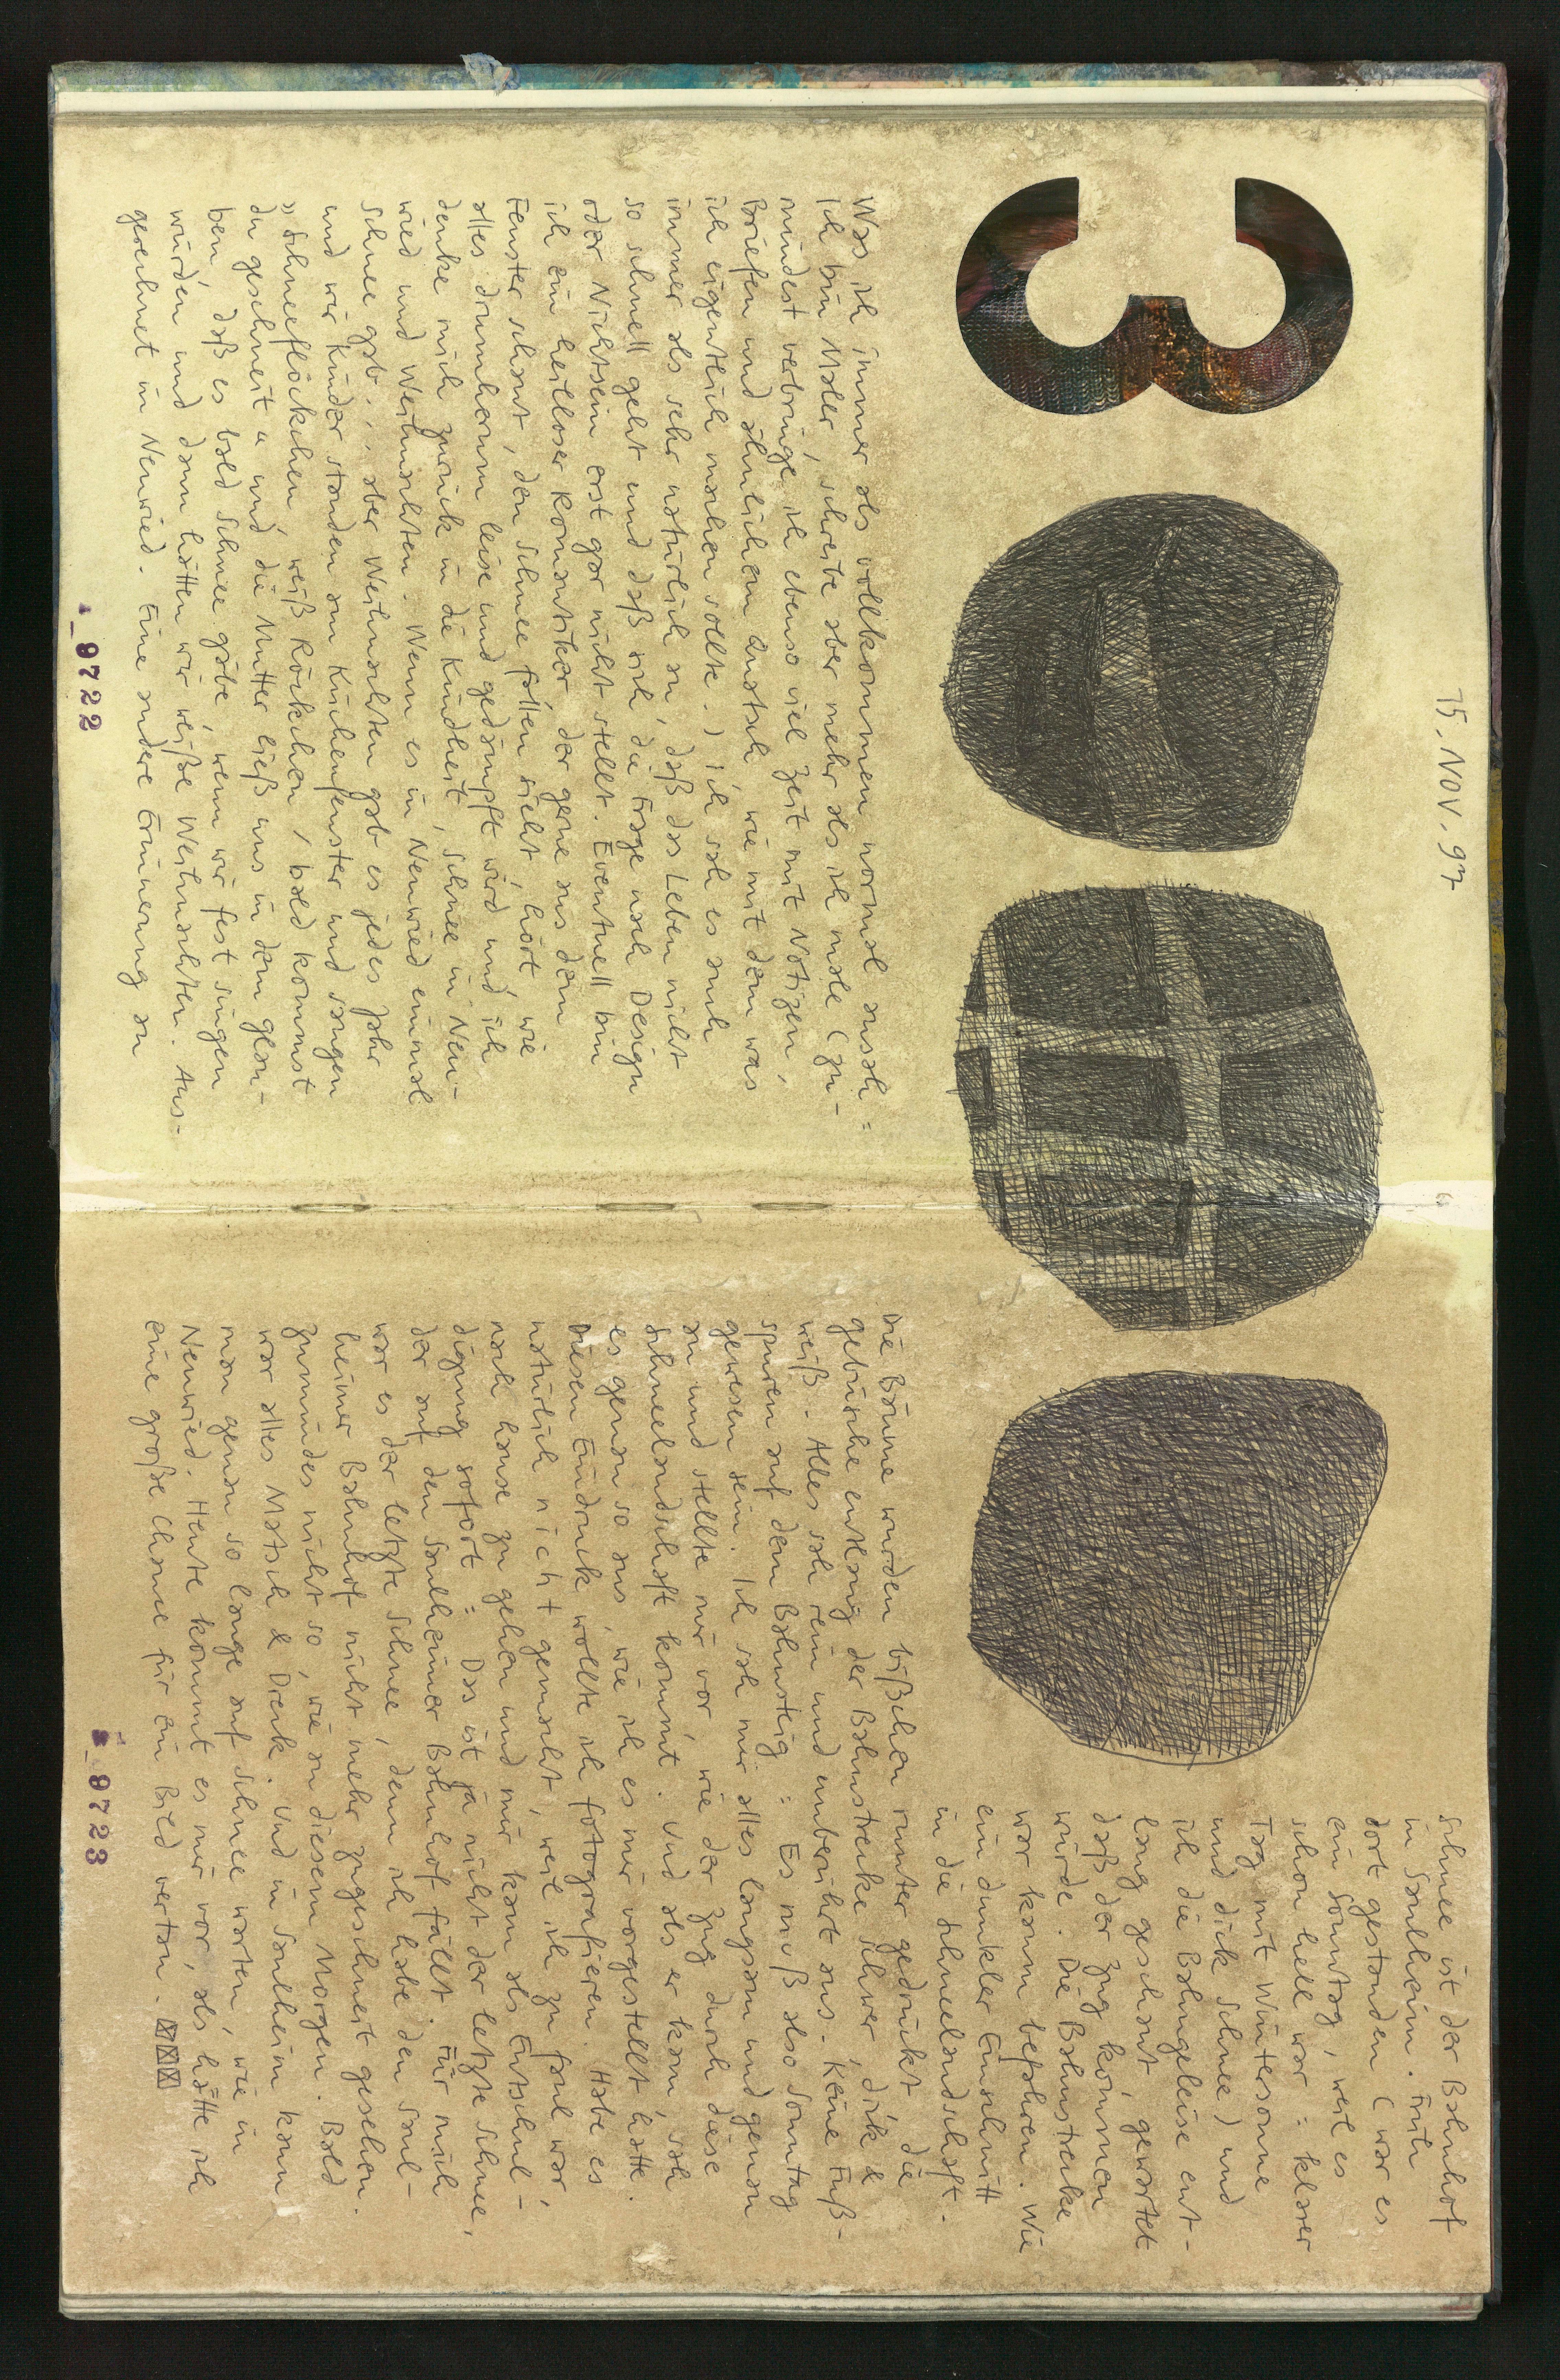 15. NOV. 97
Was ich immer als vollkommen normal ansah:
Ich bin Maler, schreibe aber mehr als ich male (zu-
mindest verbringe ich ebenso viel Zeit mit Notizen,
Briefen und ähnlichem Austausch wie mit dem was
ich eigentlich machen sollte.) Ich sah es auch
immer als sehr natürlich an, daß das Leben nicht
so schnell geht und daß sich die Frage nach Design
oder Nichtsein erst gar nicht stellt. Eventuell bin
ich ein heilloser Romantiker der gerne aus dem
Fenster schaut, den Schnee fallen sieht, hört, wie
alles drumherum leise und gedämpft wird und ich
denke mich zurück in die Kindheit, Schnee in Neu-
wied und Weihnachten. Wenn es in Neuwied einmal
Schnee gab... aber Weihnachten gab es jedes Jahr
und wir Kinder standen am Küchenfenster und sangen
"Schneeflöckchen, weiß Röckchen, bald kommst
du geschneit" und die Mutter ließ uns in dem Glau-
ben, daß es bald Schnee gäbe, wenn wir fest singen
würden und dann hätten wir weiße Weihnachten. Aus-
gerechnet in Neuwied. Eine andere Erinnerung an
9722
Schnee ist der Bahnhof
in Saulheim. Früh
dort gestanden (war es
ein Sonntag, weil es
schon hell war: klarer
Tag mit Wintersonne
und dick Schnee) und
ich die Bahngeleise ent-
lang geschaut, gewartet
daß der Zug kommen
würde. Die Bahnstrecke
war kaum befahren. Wie
ein dunkler Einschnitt
in die Schneelandschaft.
Die Bäume wurden bißchen runter gedrückt die
Gebüsche entlang der Bahnstrecke schwer, dick &
weiß. Alles sah rein und unberührt aus. Keine Fuß-
spuren auf dem Bahnsteig: Es muß also Sonntag
gewesen sein. Ich sah mir alles langsam und genau
an und stellte mir vor, wie der Zug durch diese
Schneelandschaft kommt. Und als er kam, sah
es genau so aus, wie ich es mir vorgestellt hatte.
Diesen Eindruck wollte ich fotografieren. Habe es
natürlich nicht gemacht, weil ich zu faul war,
nach Hause zu gehen und mir kam als Entschul-
digung sofort: Das ist ja nicht der letzte Schnee,
der auf den Saulheimer Bahnhof fällt. Für mich
war es der letzte Schnee, denn ich habe den Saul-
heimer Bahnhof nicht mehr zugeschneit gesehen.
Zumindes nicht so, wie an diesem Morgen. Bald
war alles Matsch & Dreck. Und in Saulheim kann
man genau so lange auf Schnee warten, wie in
Neuwied. Heute kommt es mir vor, als hätte ich
eine große Chance für ein Bild vertan.
9723